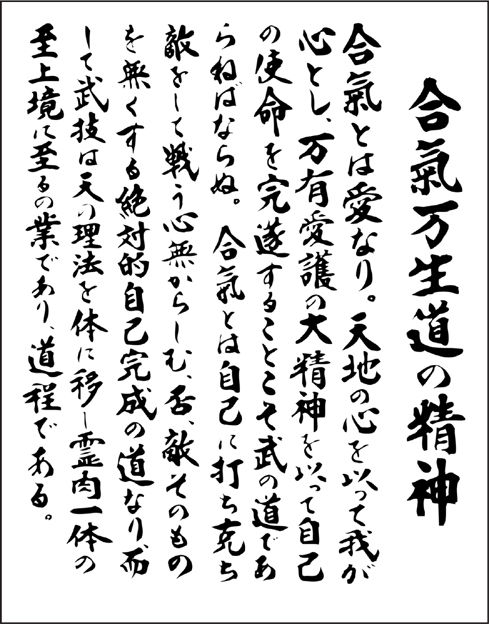 合氣万生道の精神
合氣とは愛なり。天地の心を以って我が
心とし、万有愛護の大精神を以って自己
の使命を完遂することこそ武の道であ
らねばならぬ。合氣とは自己に打ち克ち
敵をして戦う心無からしむ、否、敵そのもの
を無くする絶対的自己完成の道なり、而
して武技は天の理法を体に移し霊肉一体の
至上境に至るの業であり、道程である。